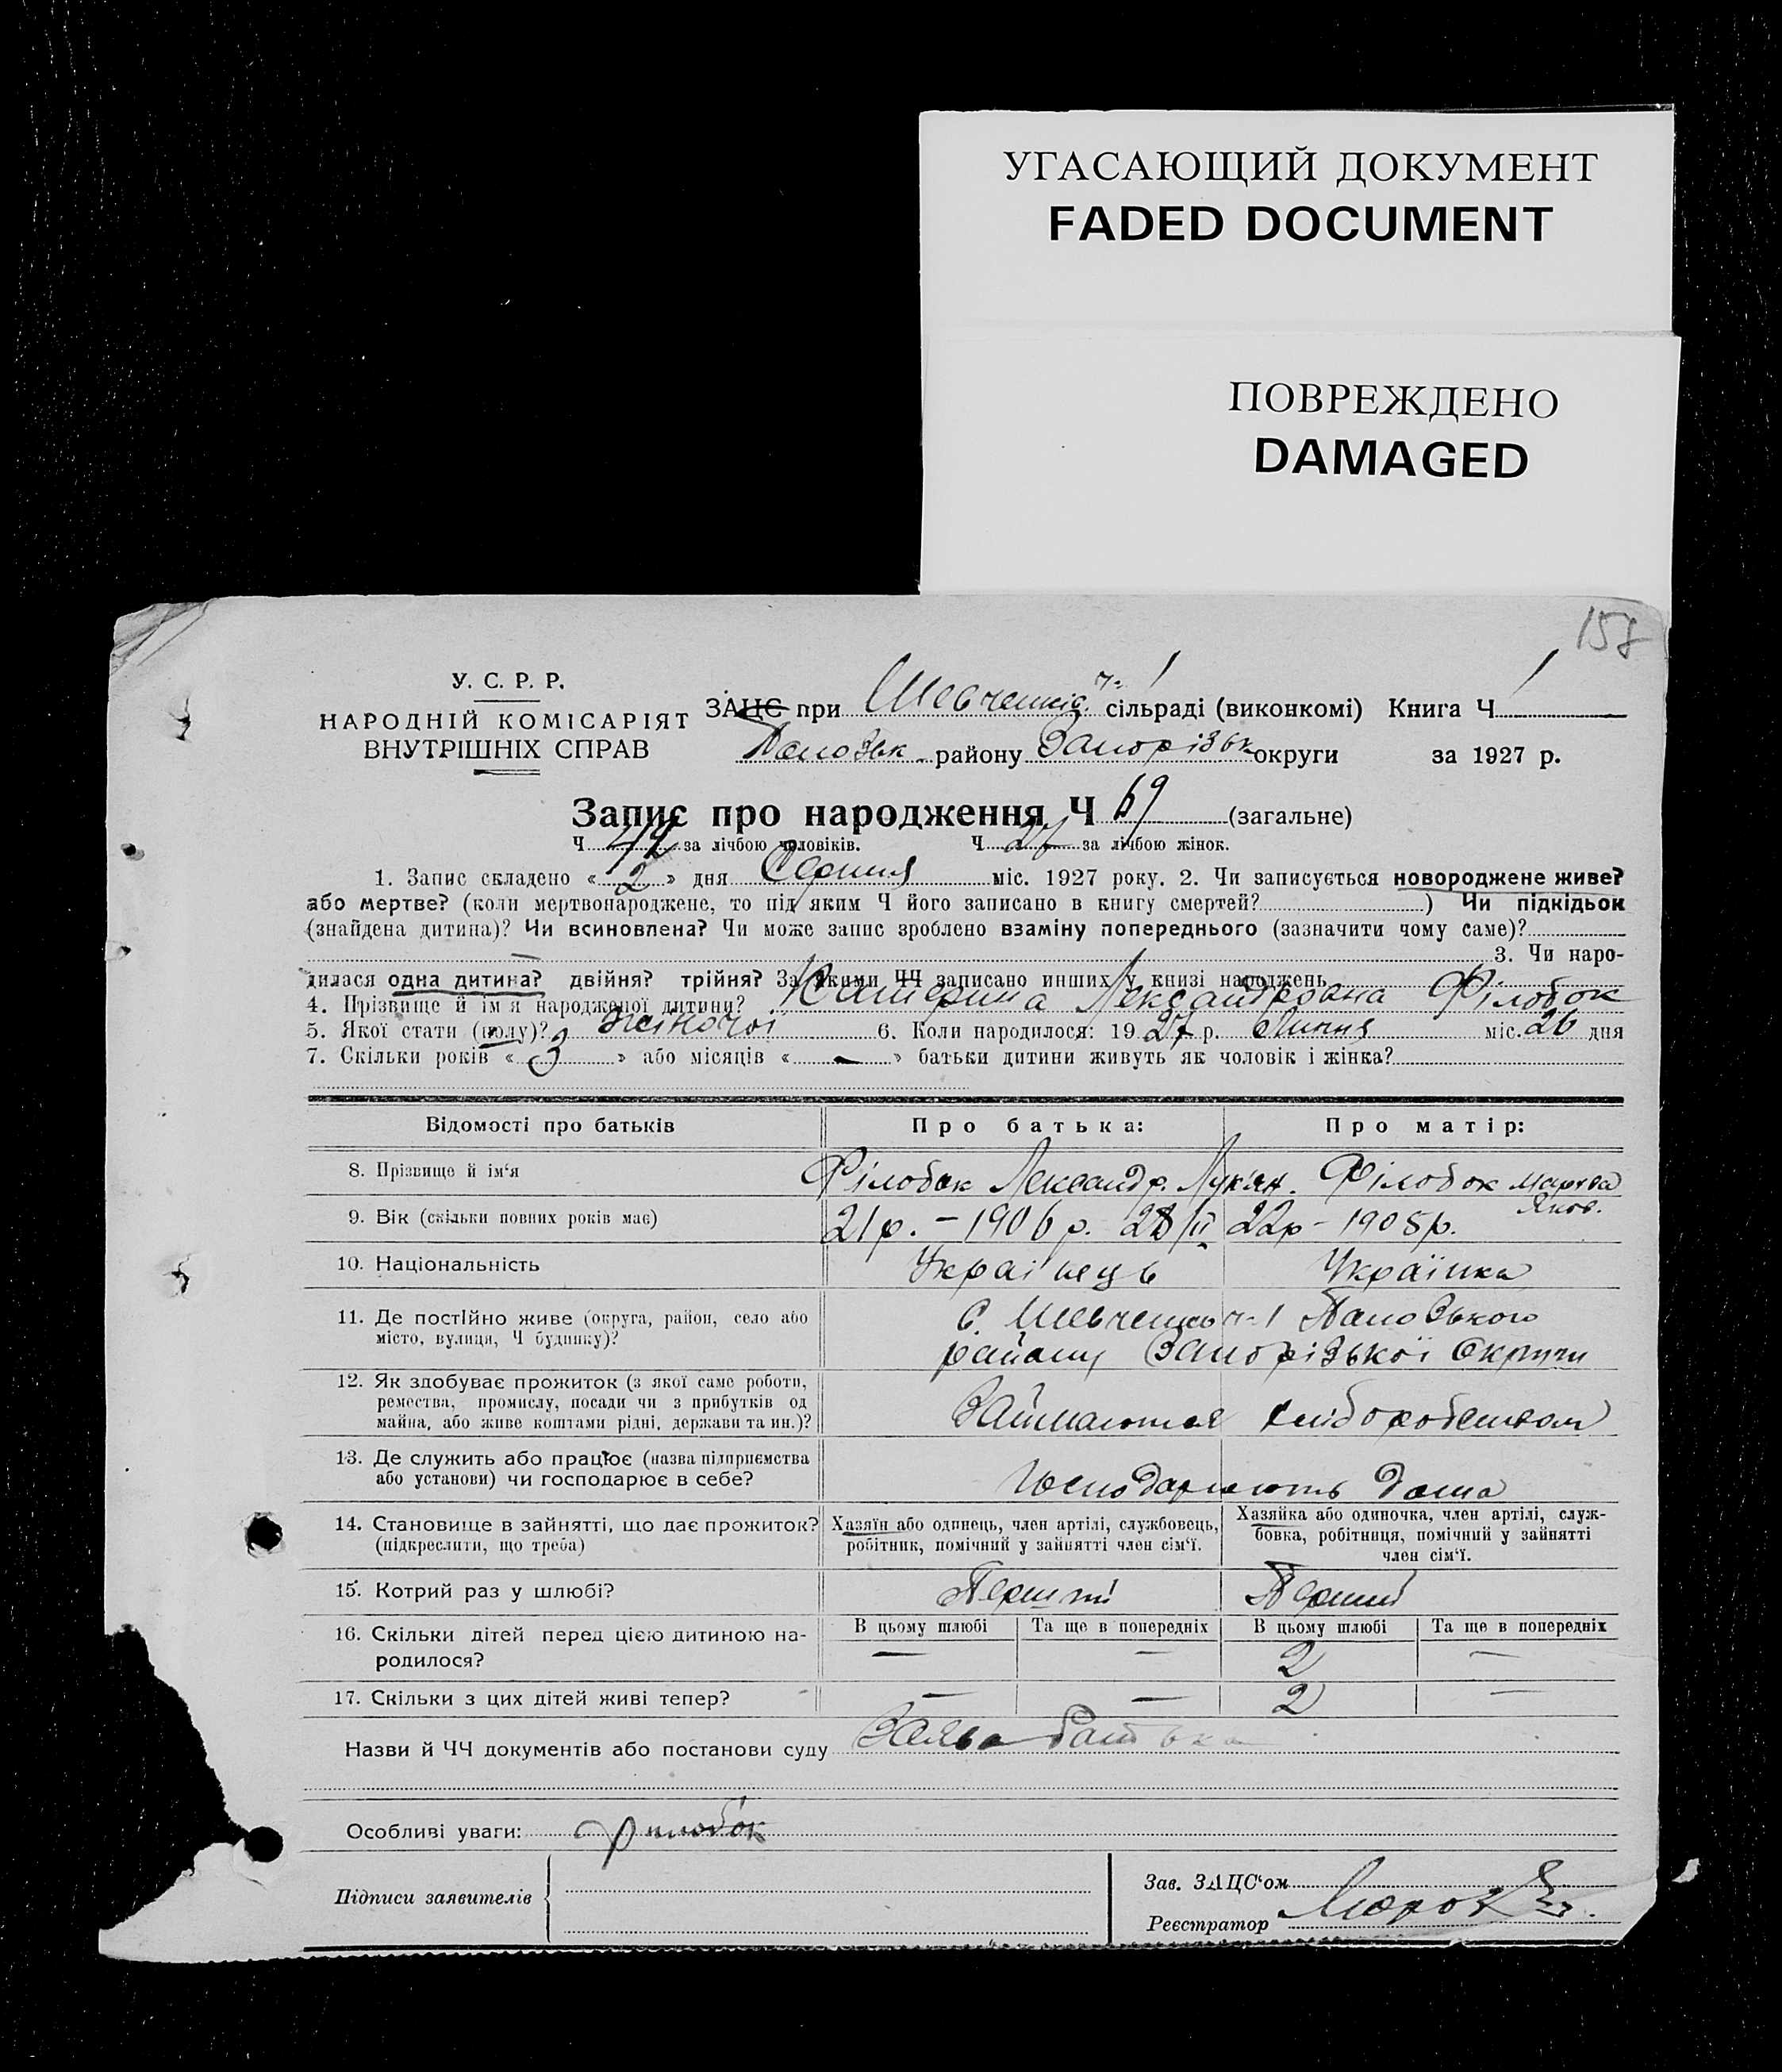 УГАСАЮЩИЙ ДОКУМЕНТ
FADED DOCUMENT
ПОВРЕЖДЕНО
DAMAGED
У. С. Р. Р.
НАРОДНІЙ КОМІСАРІЯТ
ВНУТРІШНІХ СПРАВ
ЗАЦС при Шевченків. ч. 1 сільраді (виконкомі) Книга Ч 1
району Запорізьк округи за 1927 р.
Запис про народження Ч 69 (загальне)
Ч 42 за лічбою чоловіків. Ч 27 за лічбою жінок.
1. Запис складено « 2 » дня Серпня міс. 1927 року. 2. Чи записується новороджене живе?
або мертве? (коли мертвонароджене, то під яким Ч його записано в книгу смертей? ) Чи підкідьок
(знайдена дитина)? Чи всиновлена? Чи може запис зроблено взаміну попереднього (зазначити чому саме)?
— 3. Чи наро-
дилася одна дитина? двійня? трійня? За якими ЧЧ записано инших у книзі народжень
4. Прізвище й ім'я народженої дитини? Катерина Лександровна Філобок
5. Якої стати (полу)? жіночої 6. Коли народилося: 1927 р. Липня міс. 26 дня
7. Скільки років « 3 » або місяців « — » батьки дитини живуть як чоловік і жінка?
Відомості про батьків Про батька: Про матір:
8. Прізвище й ім'я Філобок Лександр. Лук'ян. Філобок Марфа
Яков.
9. Вік (скільки повних років має) 21 р. — 1906 р. 28/II 22 р — 1905 р.
10. Національність Украінець Українка
11. Де постійно живе (округа, район, село або С. Шевченко ч. 1
місто, вулиця, Ч будинку)? району Запорізької Округи
12. Як здобуває прожиток (з якої саме роботи,
ремества, промислу, посади чи з прибутків од
майна, або живе коштами рідні, держави та ин.)? Займаются хліборобством
13. Де служить або працює (назва підприємства
або установи) чи господарює в себе? Господарюють дома
14. Становище в зайнятті, що дає прожиток? Хазяїн або одинець, член артілі, службовець, Хазяйка або одиночка, член артілі, служ-
(підкреслити, що треба) робітник, помічний у зайнятті член сім'ї. бовка, робітниця, помічний у зайнятті
член сім'ї.
15. Котрий раз у шлюбі? Перший Перший
16. Скільки дітей перед цією дитиною на- В цьому шлюбі Та ще в попередніх В цьому шлюбі Та ще в попередніх
родилося? — — 2 —
17. Скільки з цих дітей живі тепер? — — 2 —
Назви й ЧЧ документів або постанови суду Заява батька
Особливі уваги: Филобок
Підписи заявителів
Зав. ЗАЦС'ом
Реєстратор